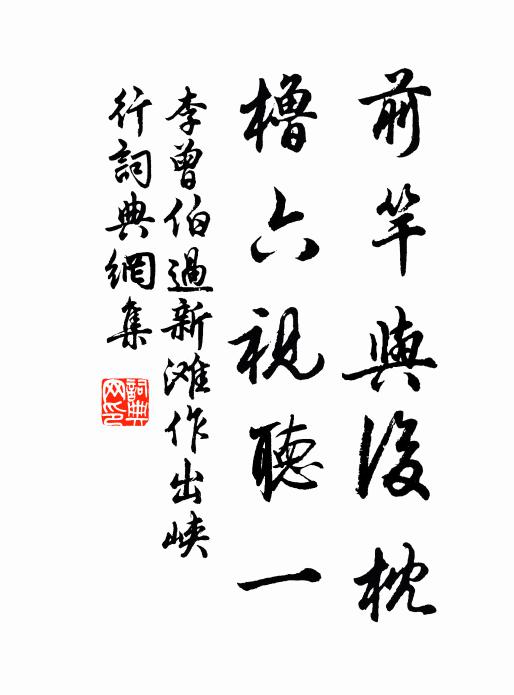 前竿與後枕
櫓六視聽一
李曾伯過新滩作出峡
行詞典網集
詞典网印